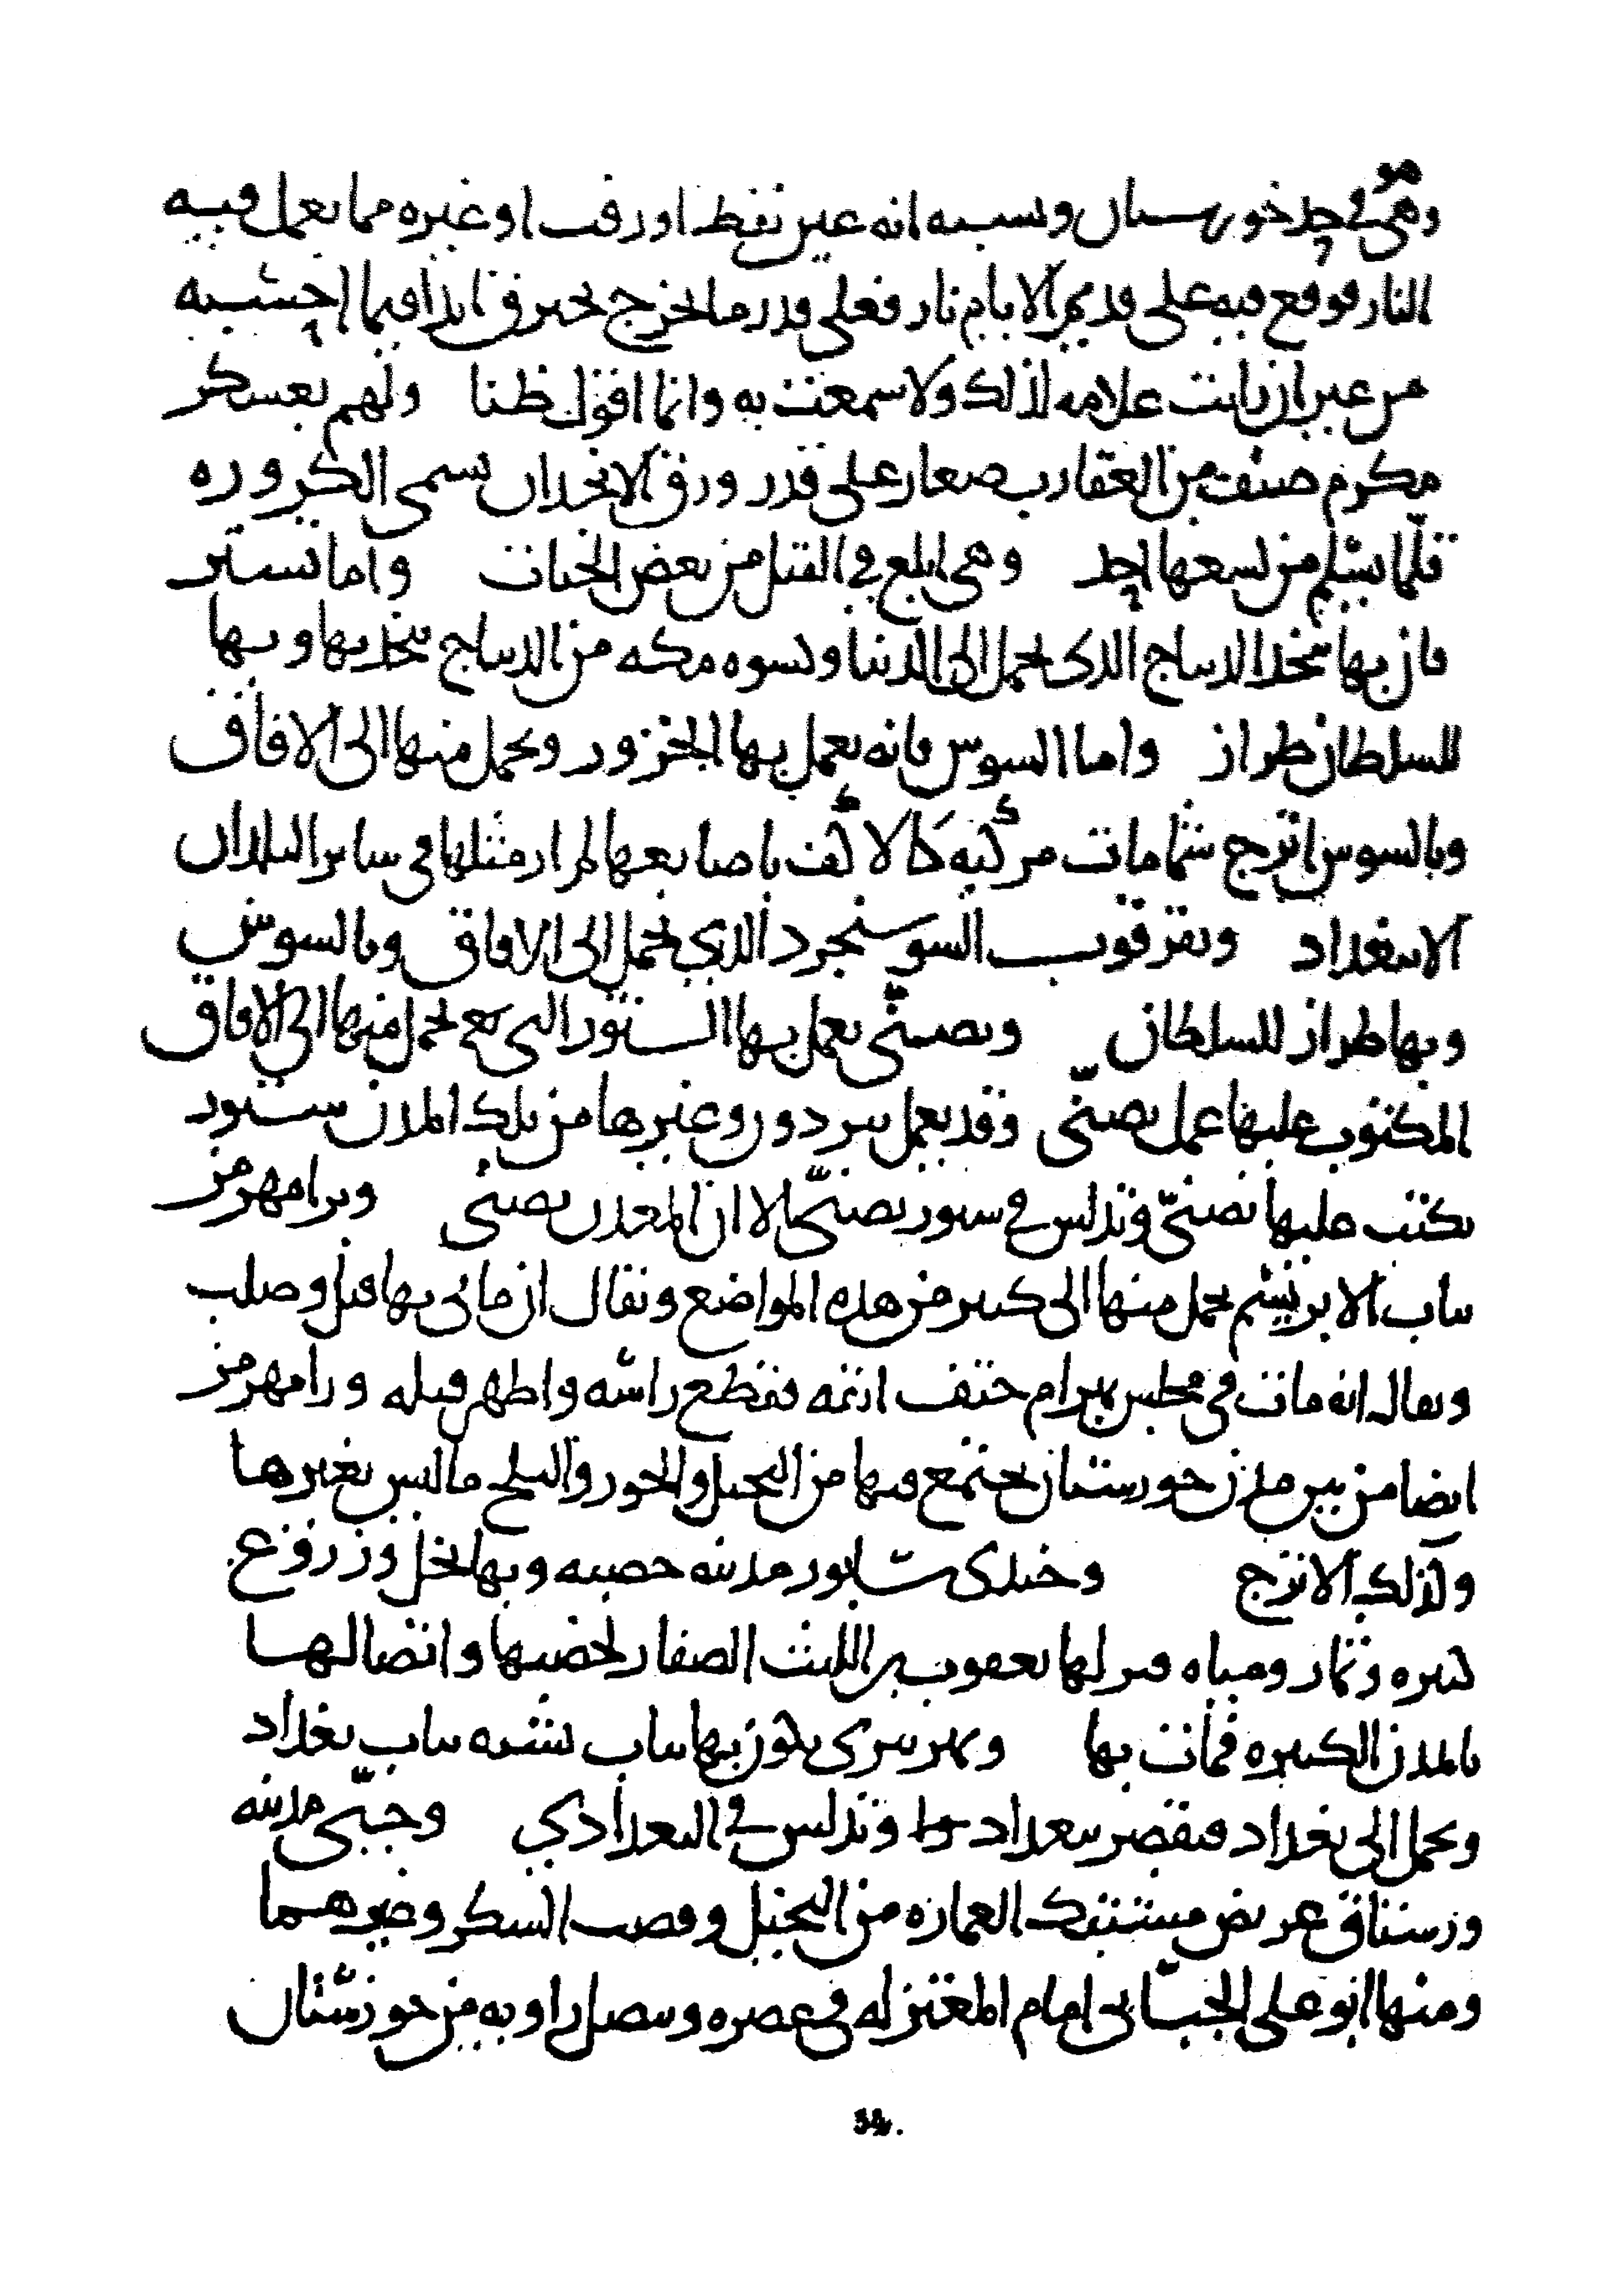 وهو في حد خورستان ونسبه انه عين نفط او زفت او غيره مما يعمل فيه
النار فوقع فيه على قديم الايام نار فعلى قدر ما يخرج يحترق ابدا فيما احسبه
من غير ان رايت علامه لذلك ولا سمعت به وانما اقول ظنا ولهم بعسكر
مكرم صنف من العقارب صغار على قدر ورق الانجدان يسمى الكروره
قلما يسلم من لسعها احد وهي ابلغ في القتل من بعض الحيات واما تستر
فان بها يتخذ الديباج الذي يحمل الى الدنيا وكسوه مكه من الديباج يتخذ بها وبها
للسلطان طراز واما السوس فانه يعمل بها الخزوز ويحمل منها الى الافاق
وبالسوس اترج شمامات مركبه كالاكف باصابعها لم ار مثلها في ساير البلدان
الا ببغداد وبقرقوب السوسنجرد الذي يحمل الى الافاق وبالسوس
وبها طراز للسلطان وبصنى يعمل بها الستور التي يحمل منها الى الافاق
المكتوب عليها عمل بصنى وقد يعمل ببردون وغيرها من تلك المدن ستور
يكتب عليها بصنى وتدلس في ستور بصنى الا ان المعدن بصنى وبرامهرمز
ثياب الابريسم يحمل منها الى كثير من هذه المواضع ويقال ان ماني بها قتل وصلب
ويقال انه مات في محبس بهرام حتف انفه فقطع راسه واظهر قتله ورامهرمز
ايضا من بين مدن خورستان يجتمع فيها من النخيل والجوز والثلج ما ليس بغيرها
وكذلك الاترج وجندى سابور مدينه خصبه وبها نخل وزروع
كثيره وثمار ومياه فنزلها يعقوب بن الليث الصفار لخصبها واتصالها
بالمدن الكثيره فمات بها ونهر تيرى يكون بها ثياب تشبه ثياب بغداد
ويحمل الى بغداد فيقصر ببغداد وتدلس في البغدادي وجبى مدينه
ورستاق عريض مشتبك العماره من النخيل وقصب السكر وغيرهما
ومنها ابو على الجبائي امام المعتزله في عصره ويتصل زاويه من خورستان